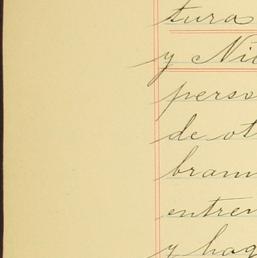 tura
y Ni
perso
de ot
bram
entre
y hag